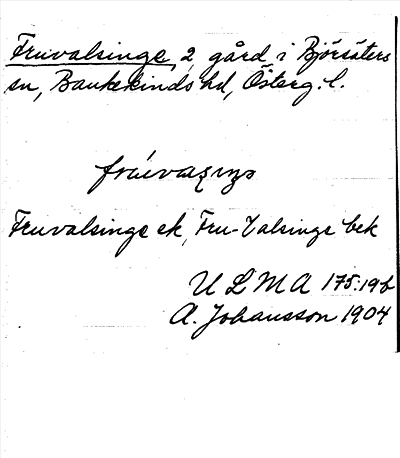 Fruvalsinge, 2 gård i Björsäters
sn, Bankekinds hd, Österg. l.
Fruvalsinge ek, Fru-Valsinge bek
U L M A 175:19b
A. Johansson 1904